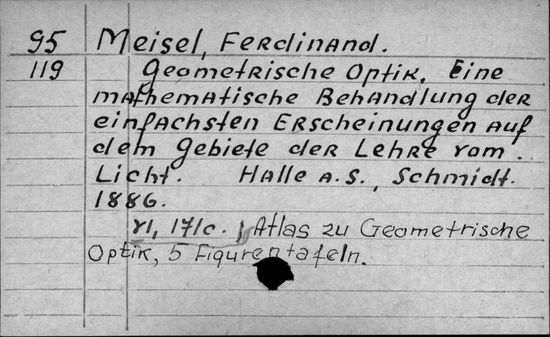 95 Meisel, Ferdinand.
119 Geometrische Optik. Eine
mathematische Behandlung der
einfachsten Erscheinungen auf
dem Gebiete der Lehre vom
Licht. Halle a. S., Schmidt.
1886.
Atlas zu Geometrische
Optik, 5 Figurentafeln.